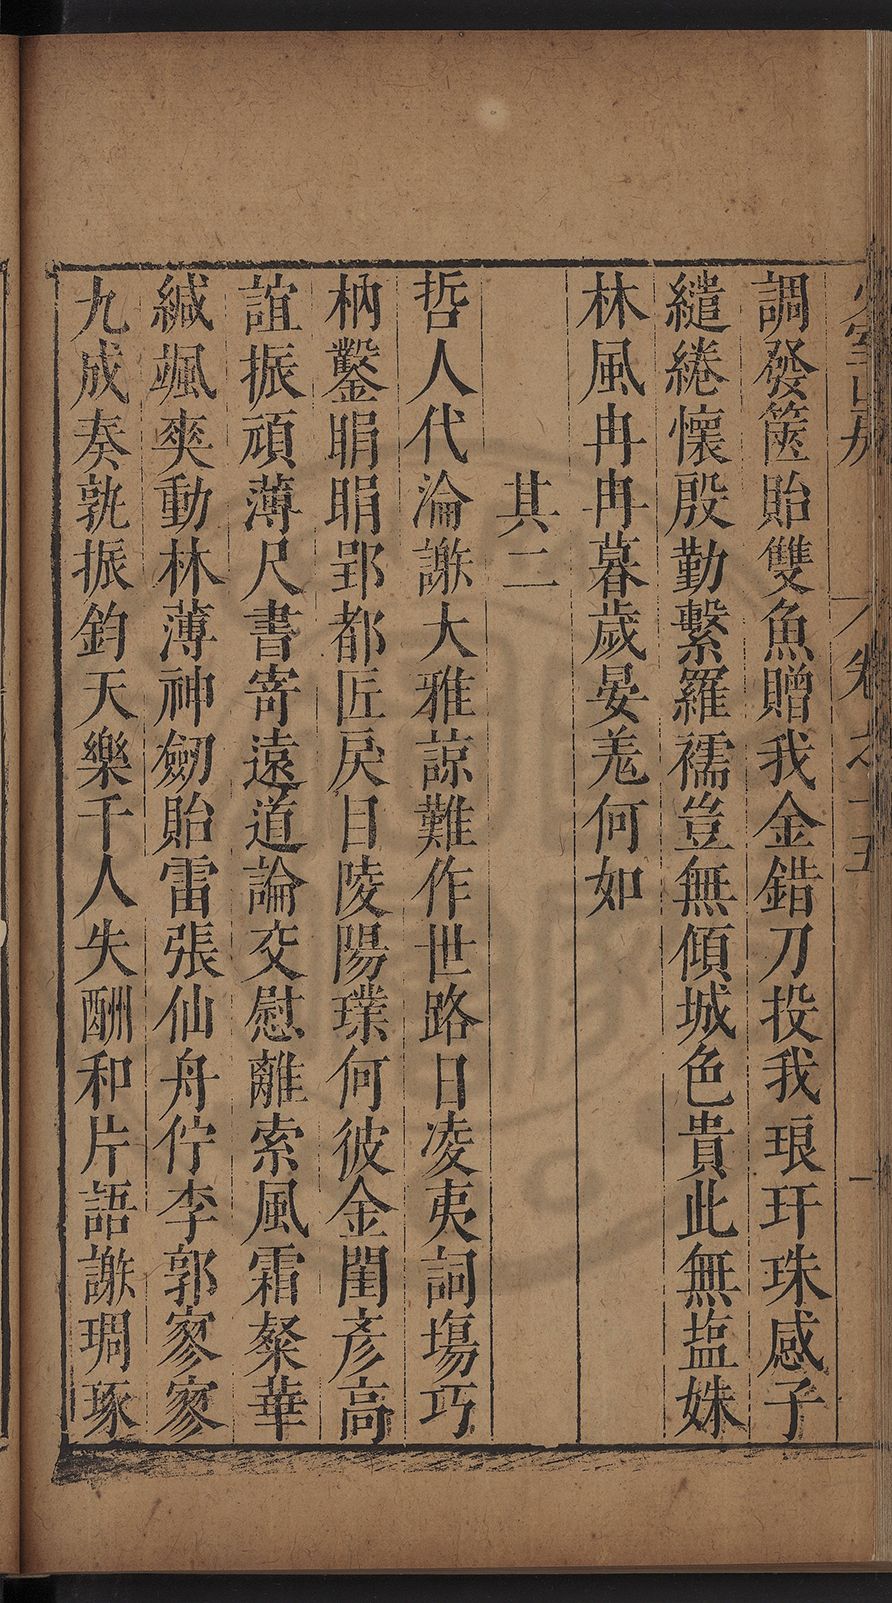 少室山房 卷之十五 一
調發篋貽雙魚贈我金錯刀投我琅玕珠感子
繾綣懷殷勤繫羅襦豈無傾城色貴此無鹽姝
林風冉冉暮歲晏羌何如
其二
哲人代淪謝大雅諒難作世路日凌夷詞塲巧
枘鑿睊睊郢都匠戾目陵陽璞何彼金閨彥高
誼振頑薄尺書寄遠道論交慰離索風霜粲華
緘颯爽動林薄神劒貽雷張仙舟佇李郭寥寥
九成奏孰振鈞天樂千人失酬和片語謝琱琢